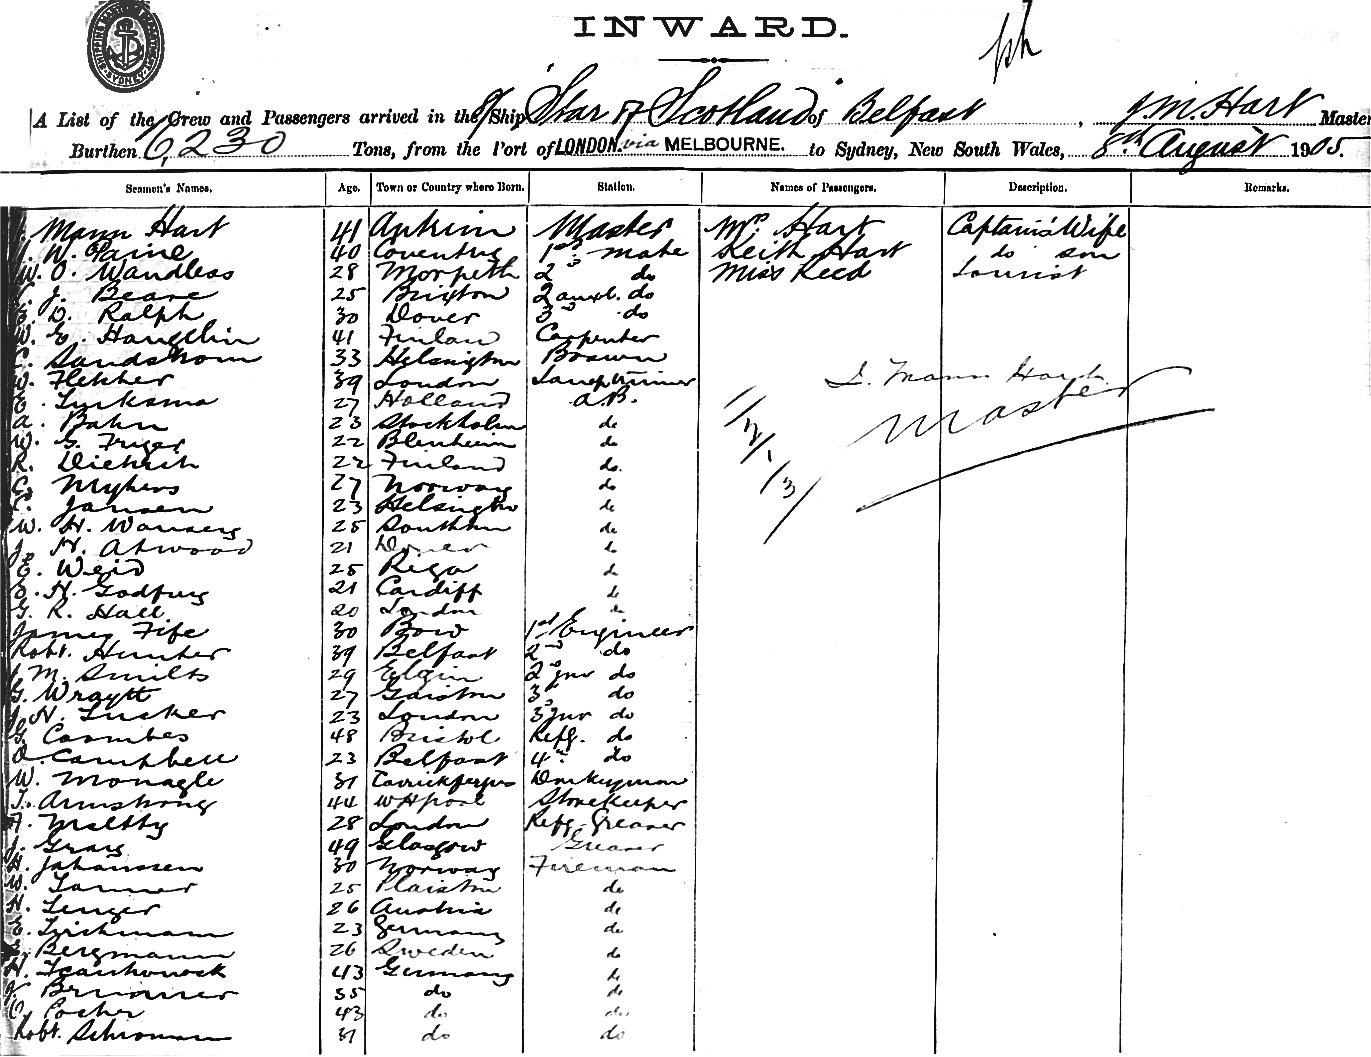 INWARD.
A List of the Crew and Passengers arrived in the S/Ship "Star of Scotland" of Belfast, J. M. Hart Master
Burthen 6,230 Tons, from the Port of LONDON. via MELBOURNE. to Sydney, New South Wales, 8th August 1905.
Seamen's Names. Age. Town or Country where Born. Station. Names of Passengers. Description. Remarks.
Mann Hart 41 Antrim Master Mrs Hart Captain's Wife
W. Paine 40 Coventry 1st mate Keith Hart do son
W. O. Wandless 28 Morpeth 2nd do Miss Reed Tourist
J. Beare 25 Brixton 2 auxl. do
D. Ralph 30 Dover 3rd do
W. E. 41 Finlan Carpenter
Sandstrom 33 Helsington Boswn
W. Fletcher 39 London Lamptrimer
Turksma 27 Holland A.B.
A. Bahn 23 Stockholm do
W. G. Friger 22 Blenheim do
R. Dietrich 22 Finland do.
C. Myhers 27 Norway do
C. Jansen 23 Helsingfor do
W. H. 25 Southtn do
J. H. Atwood 21 Dover do
E. Weid 25 Riga do
E. H. Godfrey 21 Cardiff do
G. R. Hall 20 London do
James Fife 30 Bow 1st Engineer
Robt. Hunter 39 Belfast 2nd do
J. M. Smilts 29 Elgin 2nd Jnr do
G. Wraytt 27 Garston 3rd do
J. H. Tucker 23 London 3 Jnr do
G. Coombes 48 Bristol Refg. do
O. Campbell 23 Belfast 4th do
W. Monagle 31 Carrickfergus Donkeyman
T. Armstrong 44 WHpool Storekeeper
F. Maltby 28 London Refg. Greaser
J. Gray 49 Glasgow Greaser
H. Johanssen 30 Norway Fireman
W. Tanner 25 Plaistow do
H. Lenger 26 Austria do
E. Tirchmann 23 Germany do
E. Bergmann 26 Sweden do
H. 43 Germany do
Brunner 35 do do
O. Poscher 43 do do
Robt. Schroman 31 do do
J. Mann Hart
Master
1/2/-/3/